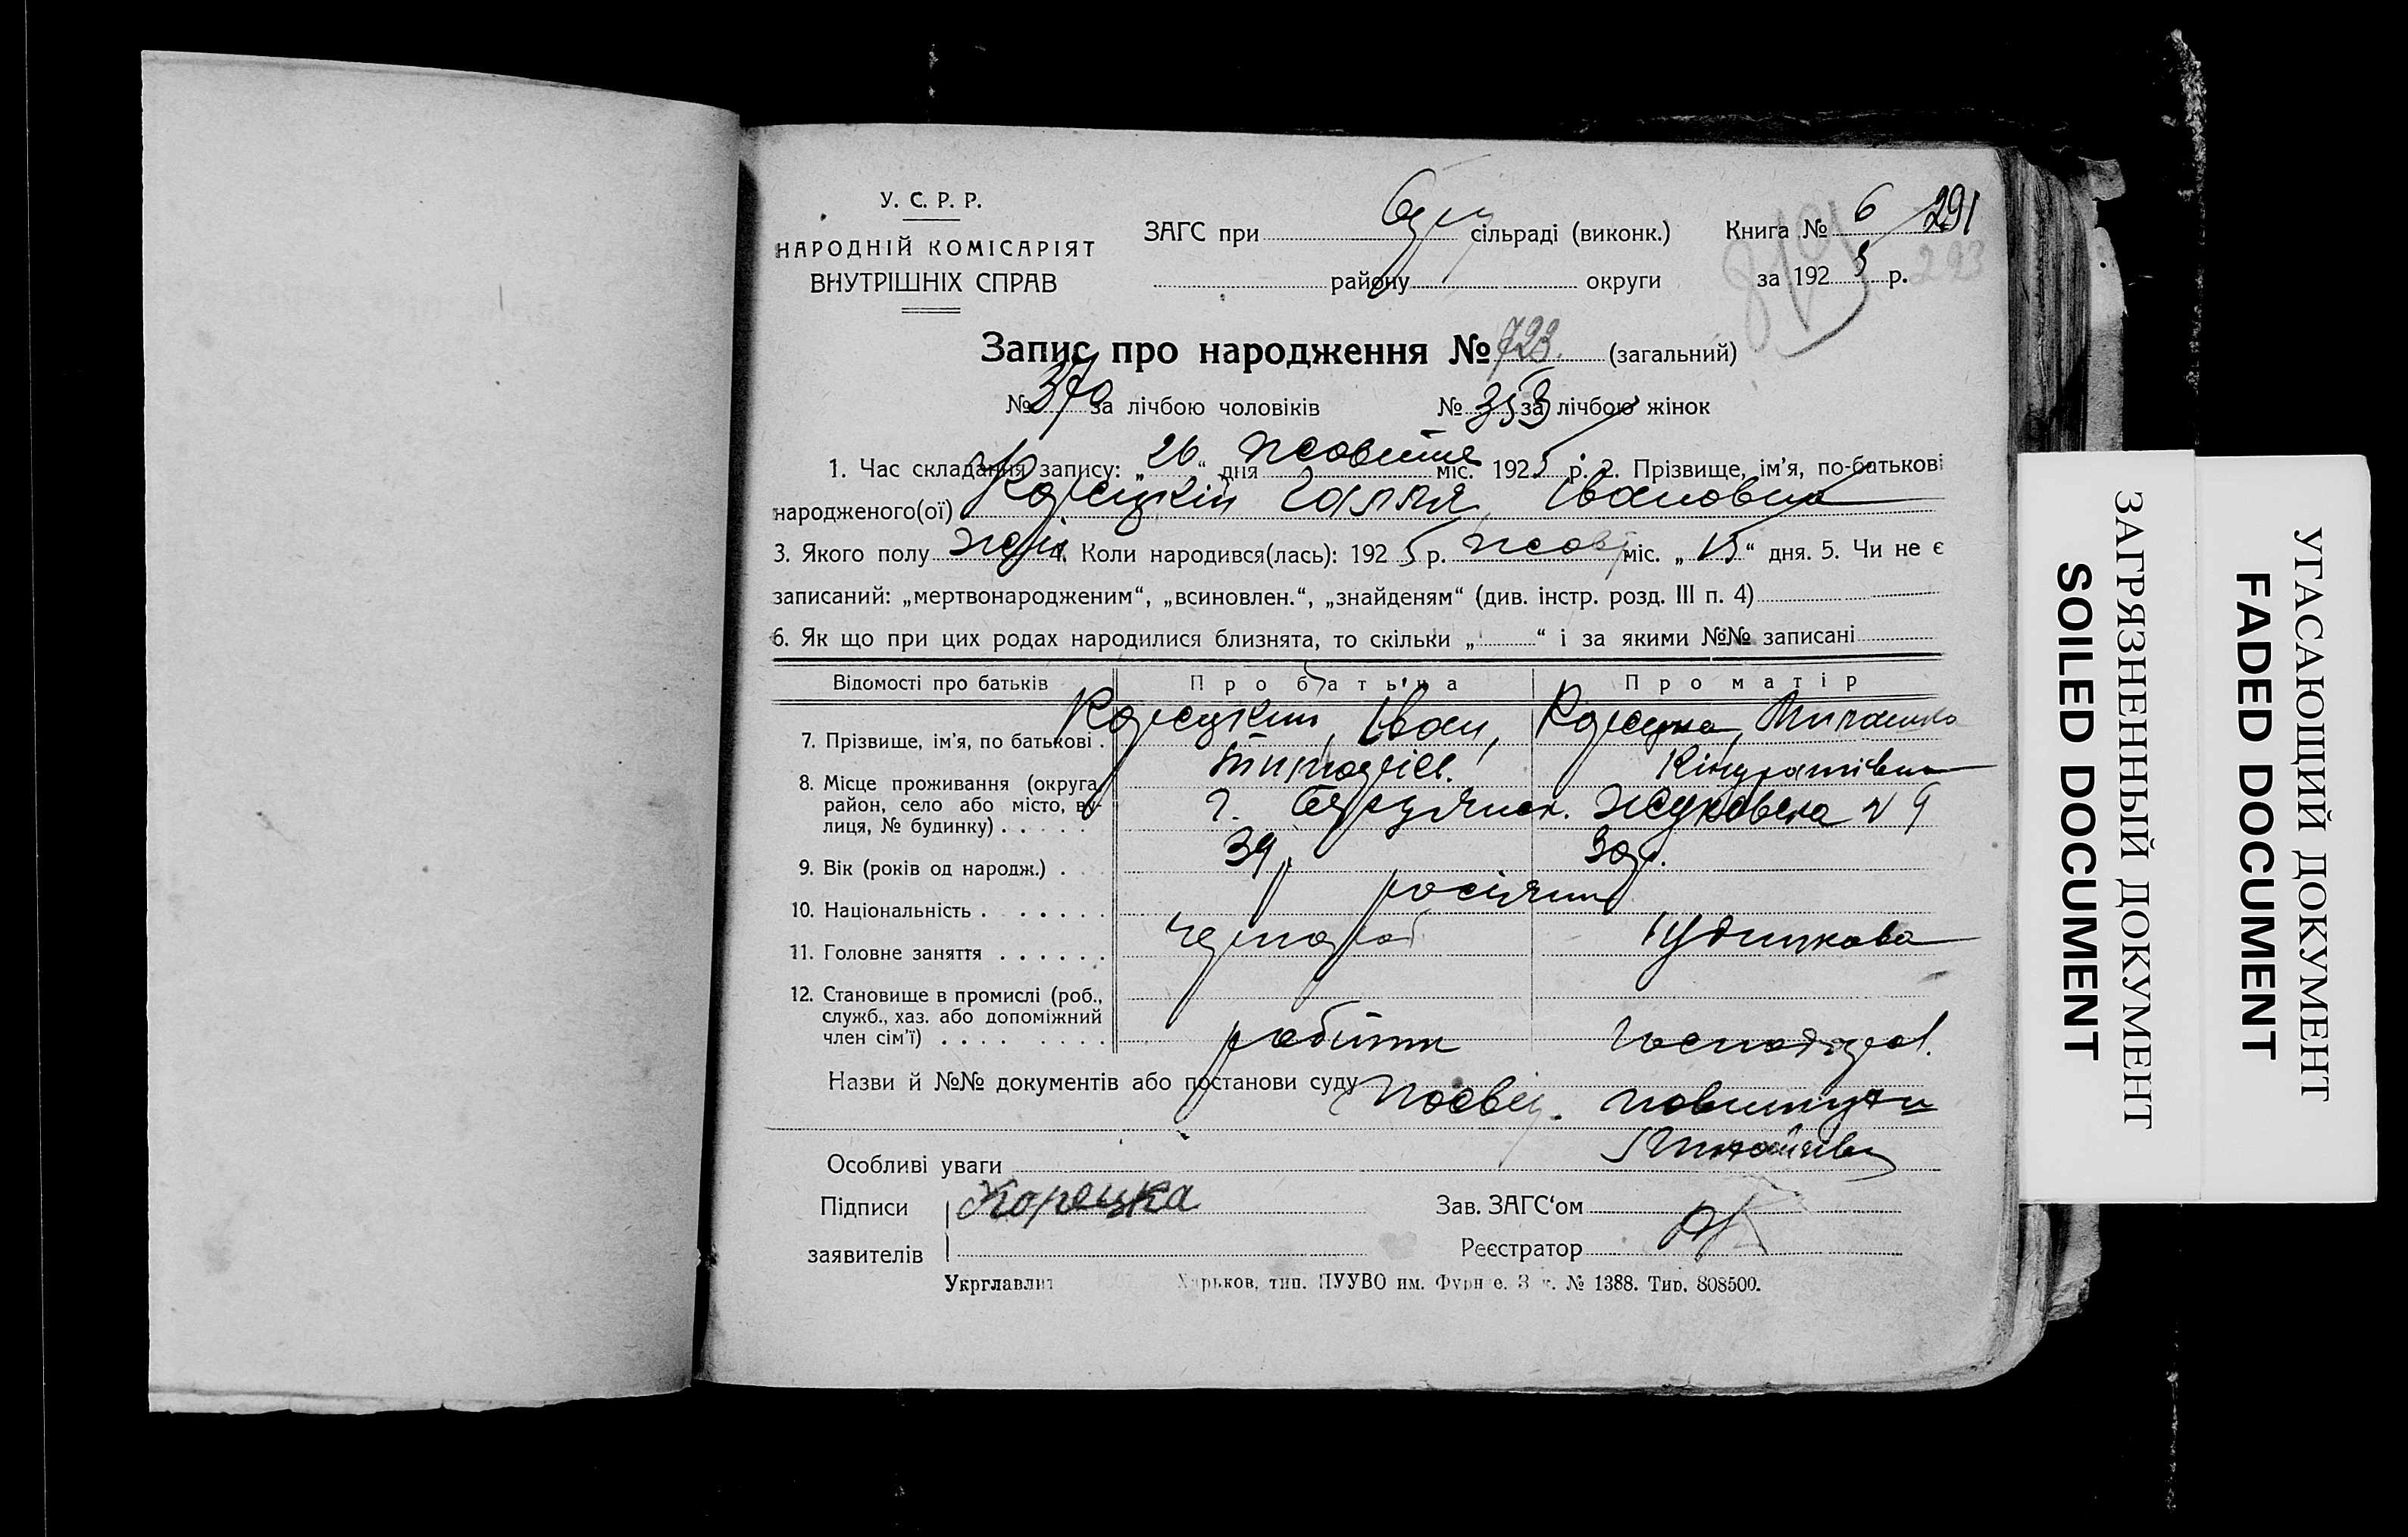 У. С. Р. Р.
НАРОДНІЙ КОМІСАРІЯТ
ВНУТРІШНІХ СПРАВ
ЗАГС при сільраді (виконк.)
району округи
Книга № 6 291
за 1925 р. 293
Запис про народження № 723. (загальний)
№ 370 за лічбою чоловіків № 353 за лічбою жінок
1. Час складання запису: „26“ дня жовтня міс. 1925 р. 2. Прізвище, ім’я, по-батькові
народженого(ої) Корецкій Галля, Івановна
3. Якого полу жін 4. Коли народився(лась): 1925 р. жовт міс. „15“ дня. 5. Чи не є
записаний: „мертвонародженим“, „всиновлен.“, „знайденям“ (див. інстр. розд. III п. 4)
6. Як що при цих родах народилися близнята, то скільки „ “ і за якими №№ записані
Відомості про батьків Про батька Про матір
7. Прізвище, ім’я, по батькові . Корецкий, Іван, Корецка,
Тимофієв. Кіндратівна
8. Місце проживання (округа, район, село або місто, ву-
лиця, № будинку) . . . . . г. Бердянск. Жуковска № 9
9. Вік (років од народж.) . 39 р. 30 р.
10. Національність . . . . . . . росіяни
11. Головне заняття . . . . . . чорнороб
12. Становище в промислі (роб.,
служб., хаз. або допоміжний
член сім’ї) . . . . . . . . робітн господар.
Назви й №№ документів або постанови суду Посвід. повитухи
Особливі уваги
Підписи Корецка Зав. ЗАГС‘ом
заявителів Реєстратор
Укрглавлит Харьков, тип. ПУУВО им. Фрунзе. Зак. № 1388. Тир. 808500.
ЗАГРЯЗНЕННЫЙ ДОКУМЕНТ
SOILED DOCUMENT
УГАСАЮЩИЙ ДОКУМЕНТ
FADED DOCUMENT